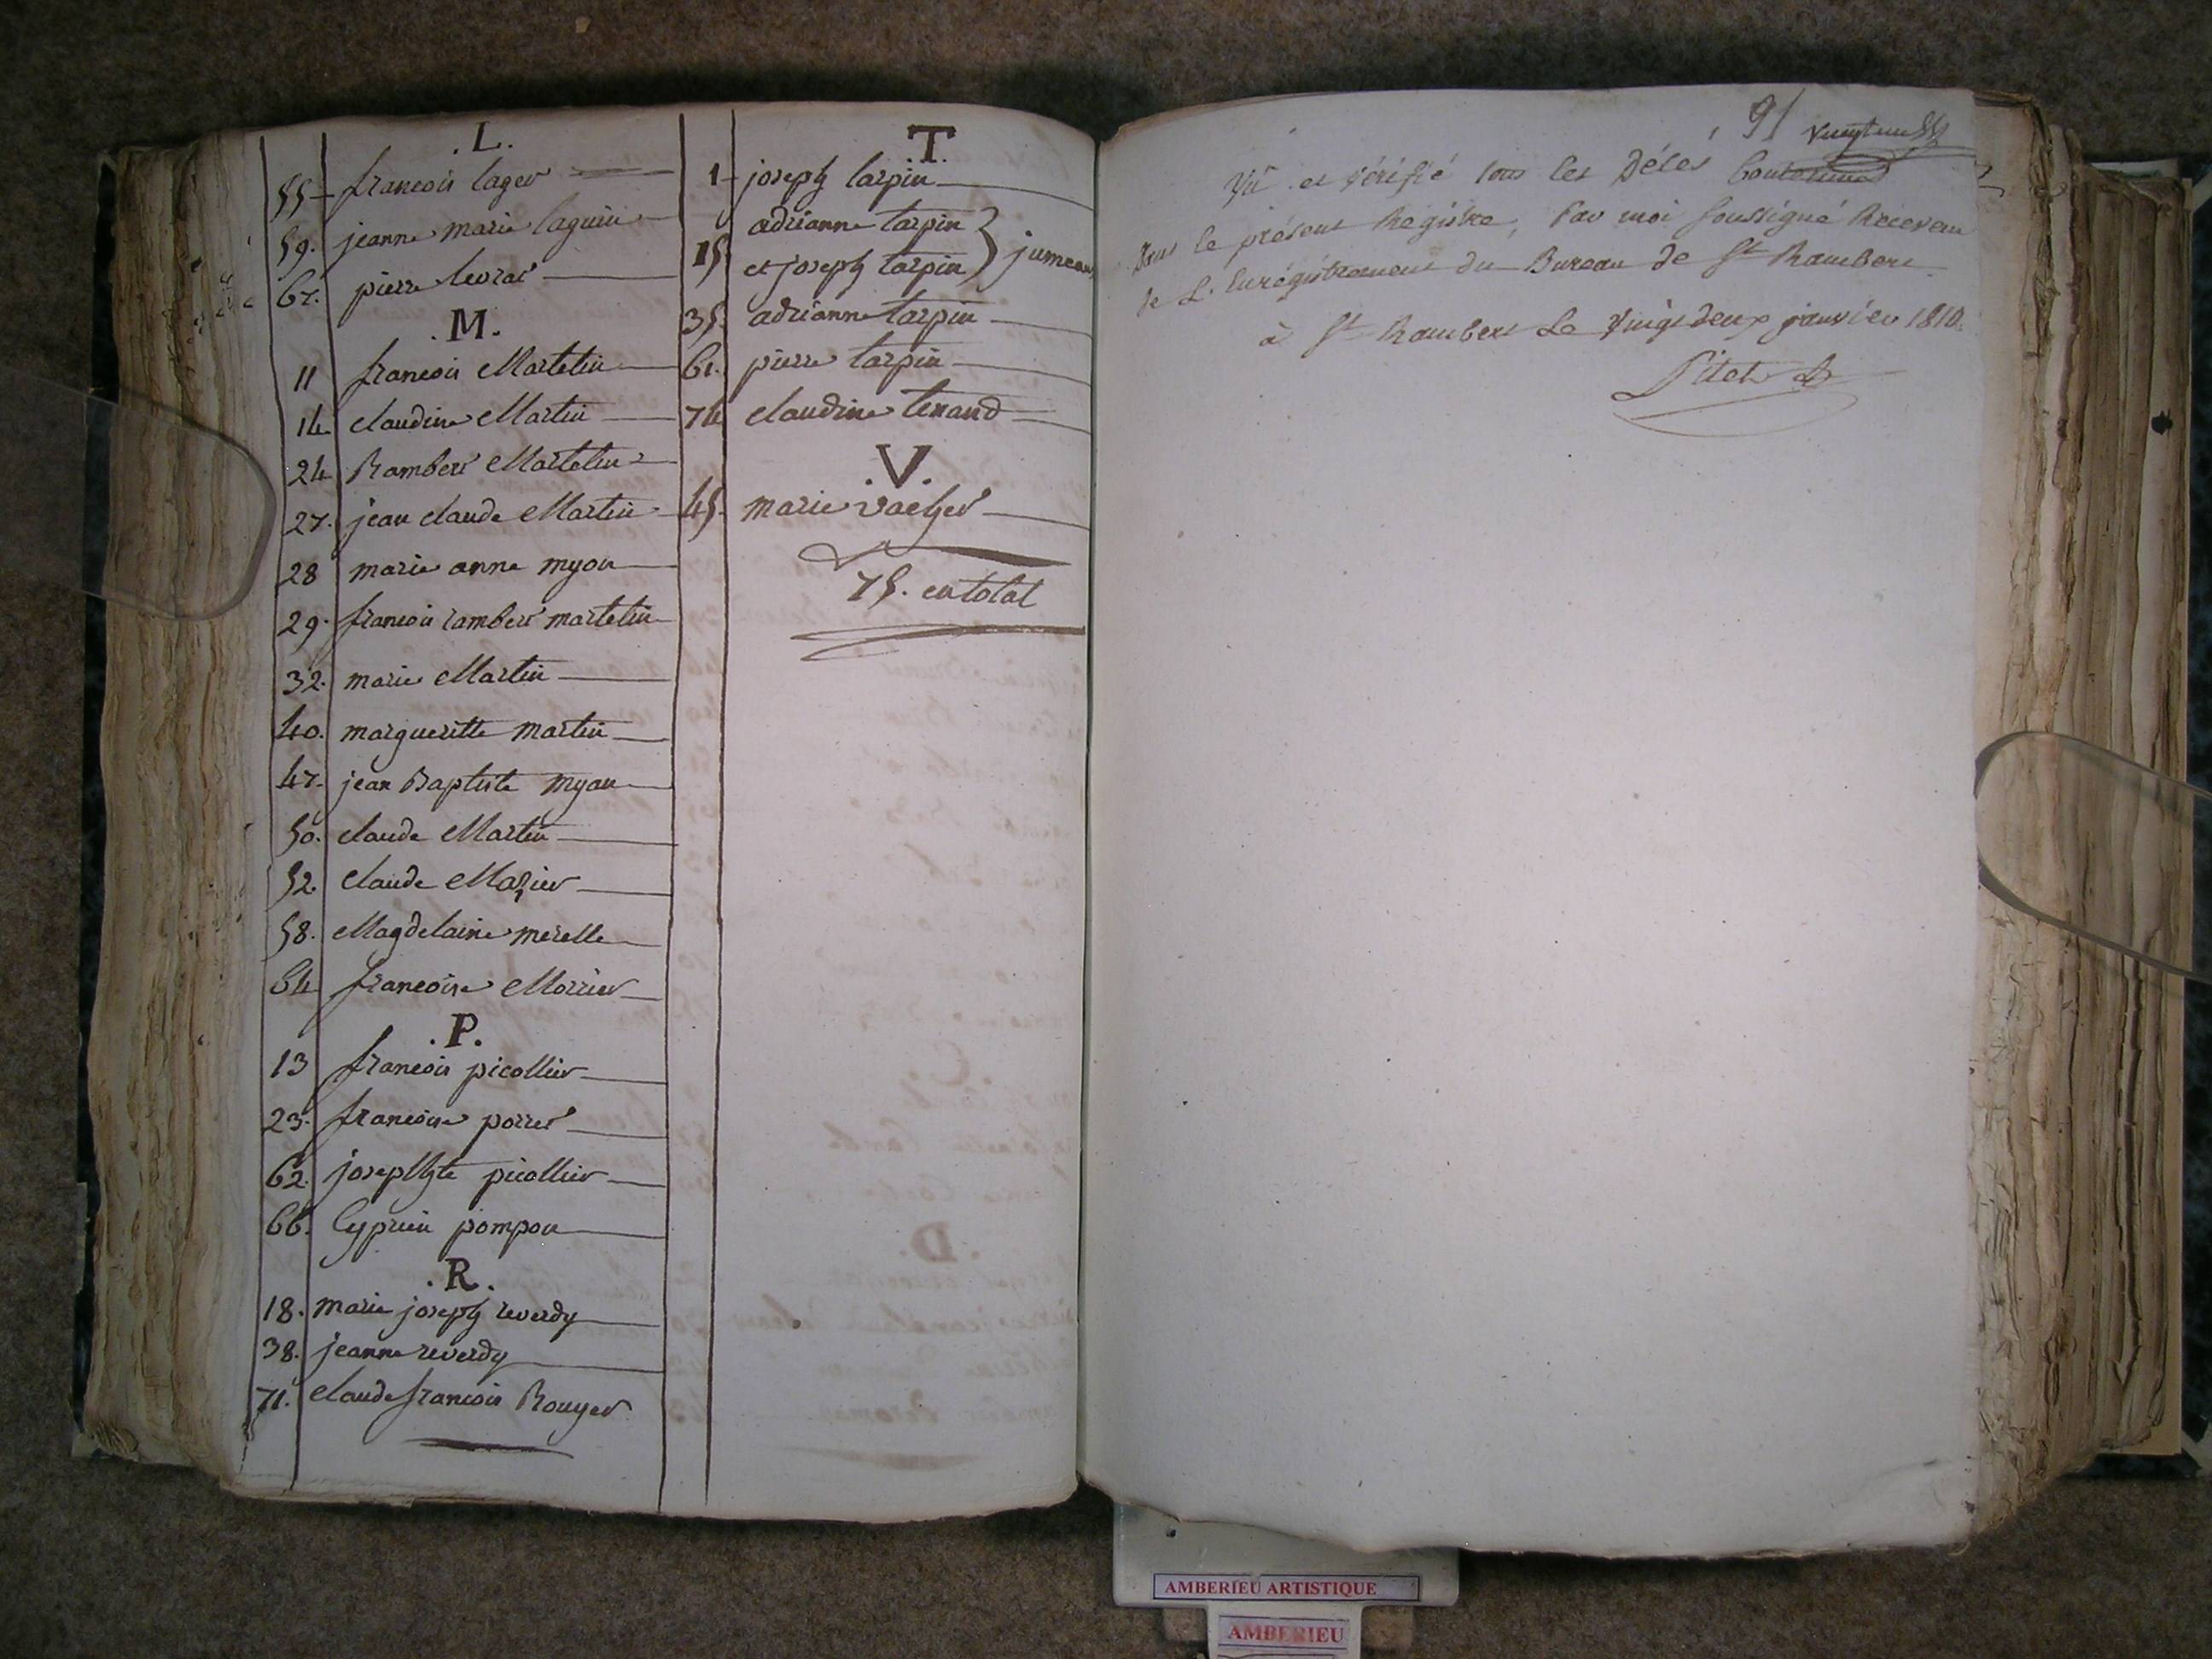 .L.
55 francois lager
59. jeanne marie laguin
67. pierre levrat
.M.
11 francois Martelin
14 claudine Martin
24 Rambert Martelin
27. jean claude Martin
28 marie anne myon
29. francois rambert martelin
32. marie Martin
40. margueritte martin
47. jean Baptiste myon
50. claude Martin
52. claude Mazier
58. Magdelaine merelle
64 francoise Morrier
.P.
13 francois picollier
23. francoise porret
62. josephte picollier
66. Cyprien pompon
.R.
18. marie joseph reverdy
38. jeanne reverdy
71. claude francois Rouyer
T.
1 joseph tarpin
adrianne tarpin
15. et joseph tarpin } jumeaux
35. adrianne tarpin
61. pierre tarpin
74 claudine tenand
.V.
45. marie vacher
75. en total
91
Vû et vérifié tous les Délés Contenus
dans le présent Registre, Par moi soussigné Receveur
de L'Enregistrement du Bureau de St Rambert
à St Rambert Le Vingt deux janvier 1810.
Pitel
AMBERIEU ARTISTIQUE
AMBERIEU